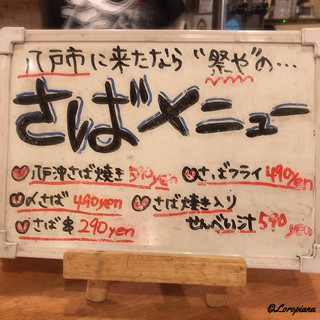 八戸市に来たなら"祭や"の…
さばメニュー
八戸沖さば焼き 590yen
さばフライ 490yen
〆さば 490yen
さば焼き入り
せんべい汁 590yen
さば串 290yen
©Loropiana